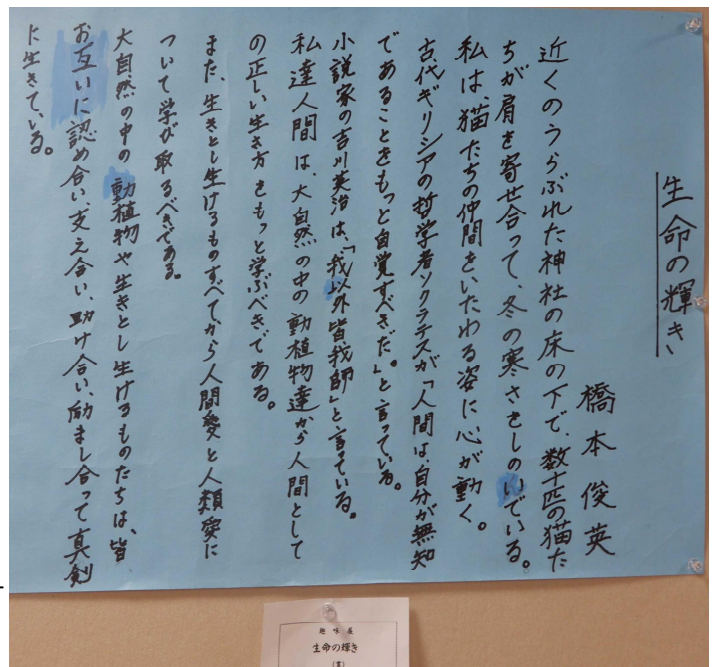 生命の輝き
橋本俊英
近くのうらぶれた神社の床の下で、数十匹の猫た
ちが肩を寄せ合って、冬の寒さをしのいでいる。
私は猫たちの仲間をいたわる姿に心が動く。
古代ギリシアの哲学者ソクラテスが「人間は、自分が無知
であることをもっと自覚すべきだ。」と言っている。
小説家の吉川英治は、「我以外皆我師」と言っている。
私達人間は、大自然の中の動植物達から人間として
の正しい生き方をもっと学ぶべきである。
また、生きとし生けるものすべてから人間愛と人類愛に
ついて学び取るべきである。
大自然の中の動植物や生きとし生けるものたちは、皆
お互いに認め合い、支え合い、助け合い、励まし合って真剣
に生きている。
趣味展
生命の輝き
(書)